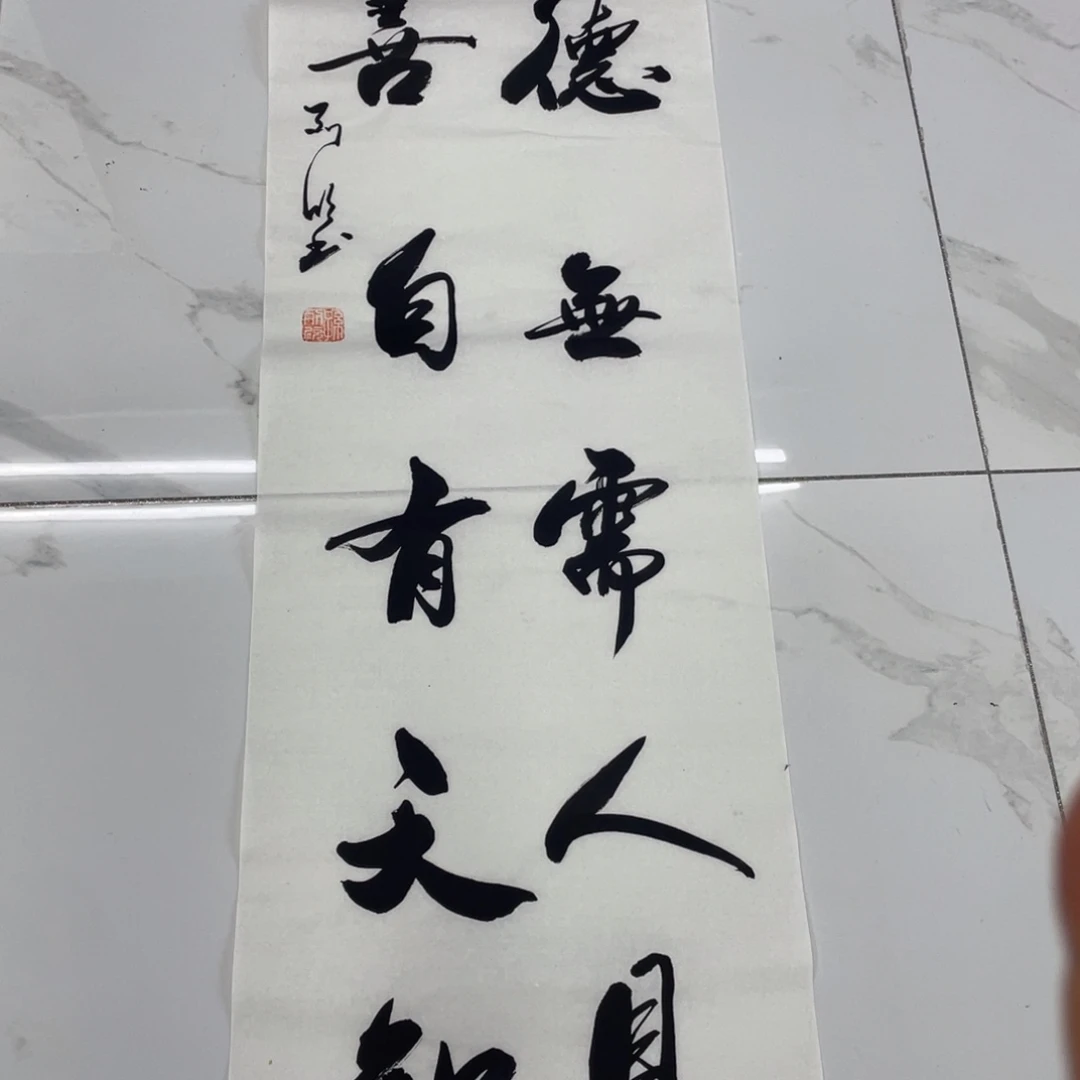 德無需人見
善自有天知